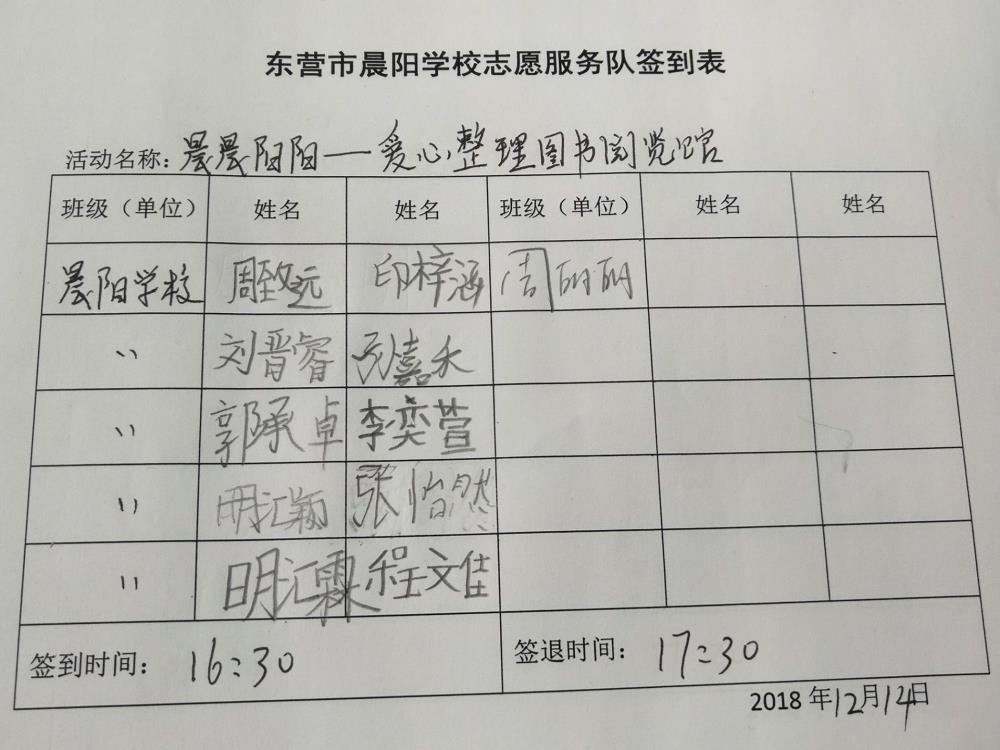 东营市晨阳学校志愿服务队签到表
活动名称：晨晨阳阳——爱心整理图书阅览馆
班级（单位） 姓名 姓名 班级（单位） 姓名 姓名
晨阳学校 周致远 印梓涵 周丽丽
〃 刘晋睿 张嘉禾
〃 郭承卓 李奕萱
〃 明汇颖 张怡然
〃 明汇霖 程文佳
签到时间：16:30 签退时间：17:30
2018年12月14日